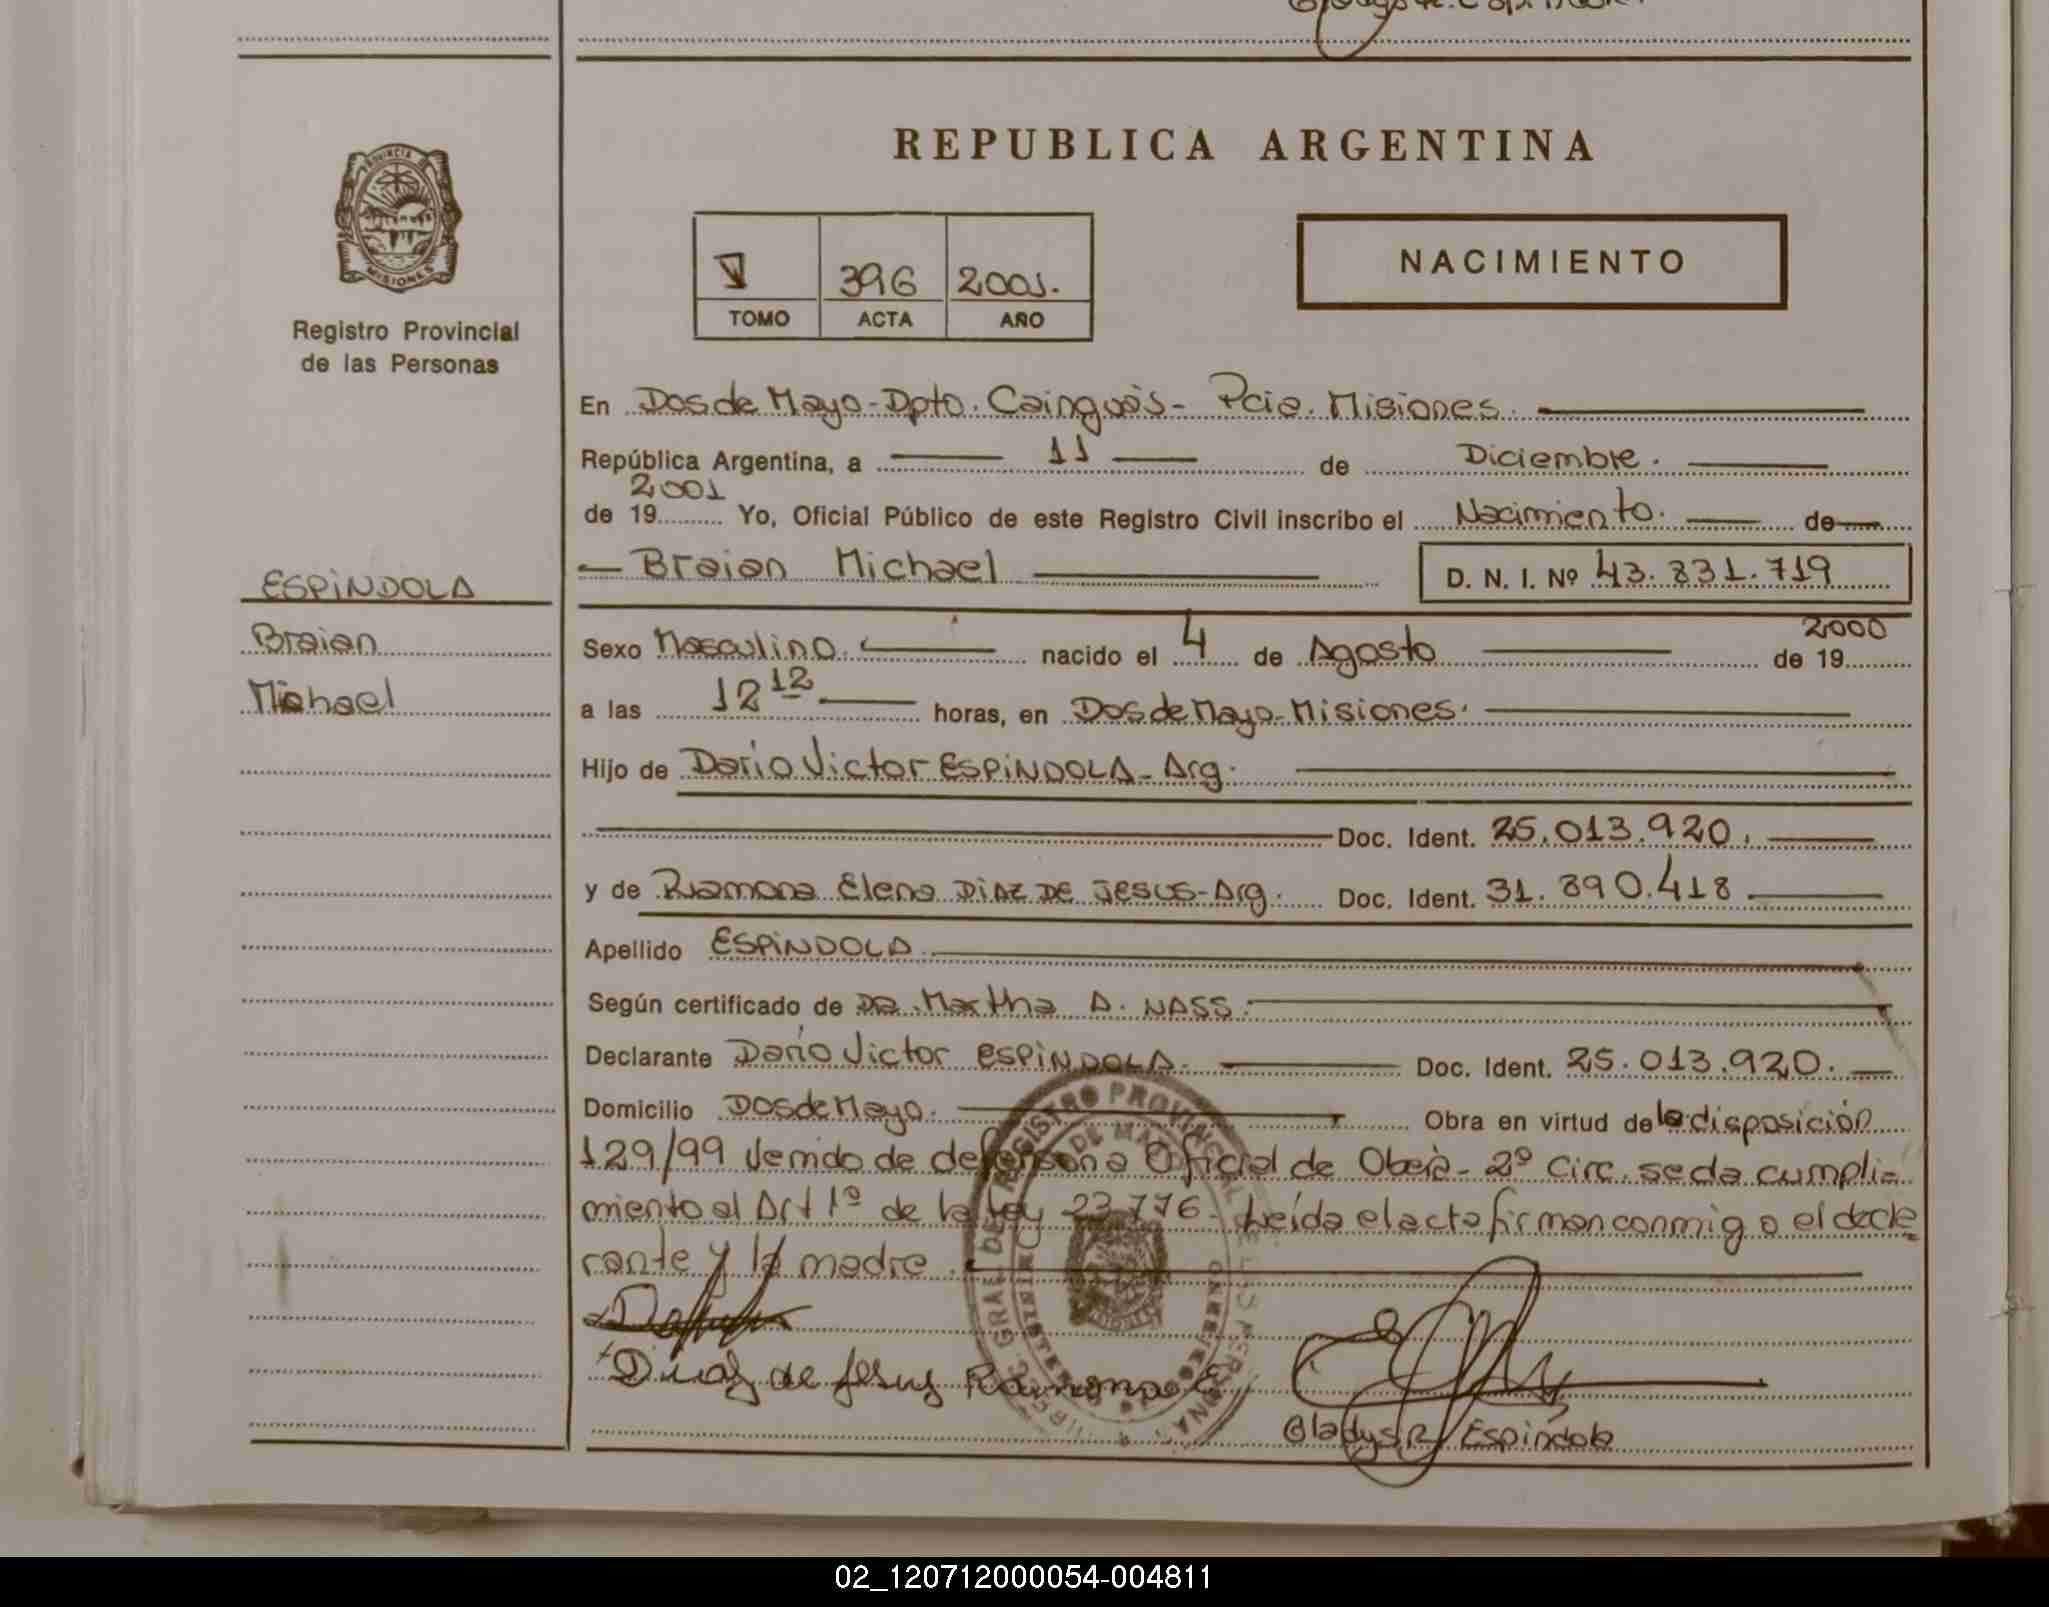 REPUBLICA ARGENTINA
PROVINCIA DE
MISIONES
Registro Provincial
de las Personas
V 396 2001.
TOMO ACTA AÑO
NACIMIENTO
En Dos de Mayo - Dpto. Cainguàs - Pcia. Misiones.
República Argentina, a 11 de Diciembre.
2001
de 19 Yo, Oficial Público de este Registro Civil inscribo el Nacimiento. de
Braian Michael D. N. I. Nº 43.831.719
ESPiNDOLA
Braian
Michael
2000
Sexo Masculino. nacido el 4 de Agosto de 19
a las 12 12 horas, en Dos de Mayo - Misiones.
Hijo de Dario Victor ESPiNDOLA - Arg.
Doc. Ident. 25.013.920.
y de Ramona Elena DiAZ DE JESUS - Arg. Doc. Ident. 31.890.418
Apellido ESPiNDOLA
Según certificado de Da. Martha A. NASS.
Declarante Dario Victor ESPiNDOLA. Doc. Ident. 25.013.920.
Domicilio Dos de Mayo. Obra en virtud de la disposición
129/99 venido de defensoria Oficial de Oberà - 2º Circ. se da cumpli-
miento al Art 1º de la Ley 23.776 - Leída el acta firman conmigo el decla-
rante y la madre.
Diaz de Jesus Ramona E
Gladys R Espíndola
02_120712000054-004811